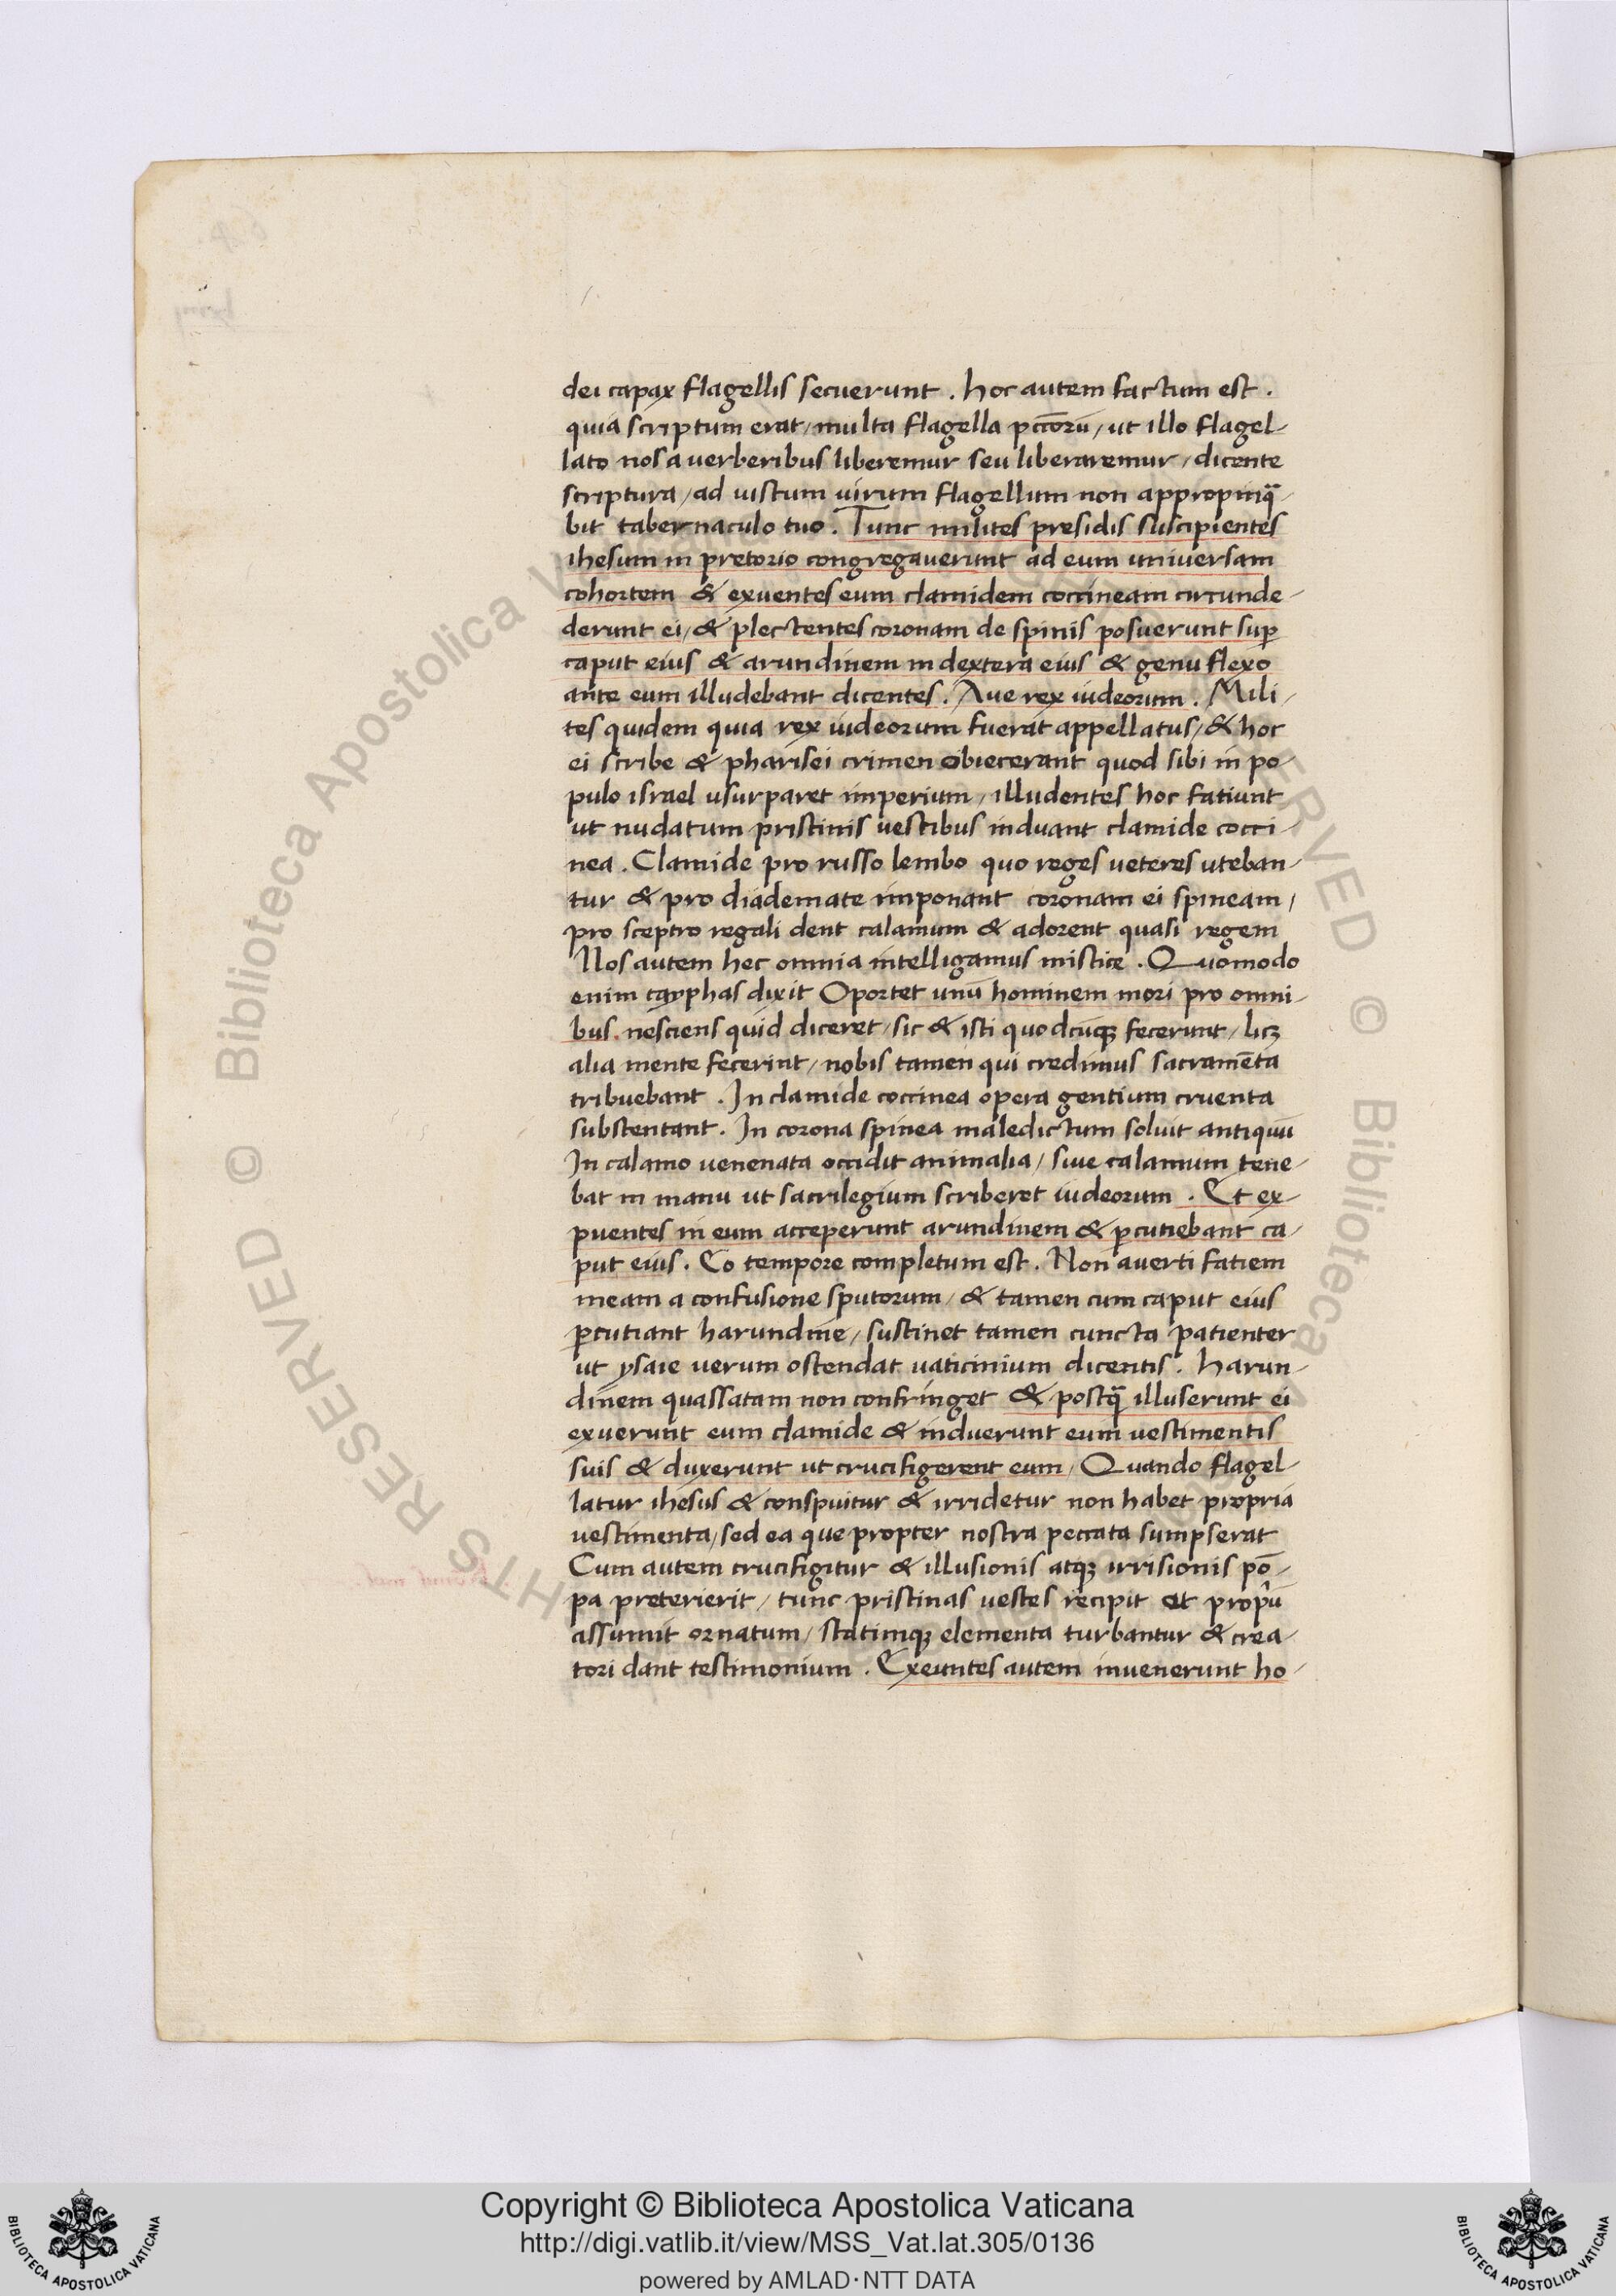 dei capax flagellis secuerunt . hoc autem factum est .
quia scriptum erat / multa flagella pccorū / ut illo flagel-
lato nos a verberibus liberemur seu liberaremur / dicente
scriptura / ad uistum uirum flagellum non appropinq̄-
bit tabernaculo tuo . Tunc milites presidis suscipientes
ihesum in pretorio congregauerunt ad eum universam
cohortem & exuentes eum clamidem coccineam circunde-
derunt ei / & plectentes coronam de spinis posuerunt sup
caput eius & arundinem in dextera eius & genu flexo
ante eum illudebant dicentes . Aue rex iudeorum . Mili-
tes quidem quia rex iudeorum fuerat appellatus / & hoc
ei scribe & pharisei crimen obiecerant quod sibi in po-
pulo israel usurparet imperium / illudentes hoc fatiunt
ut nudatum pristinis vestibus induant clamide cocci-
nea . Clamide pro russo lembo quo reges ueteres uteban-
tur & pro diademate imponant coronam ei spineam /
pro sceptro regali dent calamum & adorent quasi regem
Nos autem hec omnia intelligamus mistice . Quomodo
enim cayphas dixit Oportet unū hominem mori pro omni-
bus . nesciens quid diceret / sic & isti quodcūqꝫ fecerunt / licꝫ
alia mente fecerint / nobis tamen qui credimus sacramēta
tribuebant . In clamide coccinea opera gentium cruenta
substentant . In corona spinea maledictum soluit antiquū
In calamo uenenata occidit animalia / siue calamum tene-
bat in manu ut sacrilegium scriberet iudeorum . Et ex-
puentes in eum acceperunt arundinem & pcutiebant ca-
put eius . Eo tempore completum est . Non averti fatiem
meam a confusione sputorum / & tamen cum caput eius
pcutiant harundine / sustinet tamen cuncta patienter
ut ysaie uerum ostendat uaticinium dicentis . harun-
dinem quassatam non confringet & postq̄ illuserunt ei
exuerunt eum clamide & induerunt eum vestimentis
suis & duxerunt ut crucifigerent eum / Quando flagel-
latur ihesus & conspuitur & irridetur non habet propria
vestimenta / sed ea que propter nostra peccata sumpserat
Cum autem crucifigitur & illusionis atqꝫ irrisionis pō-
pa preterierit / tunc pristinas vestes recipit et propū
assumit ornatum / statimqꝫ elementa turbantur & crea-
tori dant testimonium . Exeuntes autem inuenerunt ho-
Copyright © Biblioteca Apostolica Vaticana
http://digi.vatlib.it/view/MSS_Vat.lat.305/0136
powered by AMLAD·NTT DATA
BIBLIOTECA APOSTOLICA VATICANA
BIBLIOTECA APOSTOLICA VATICANA